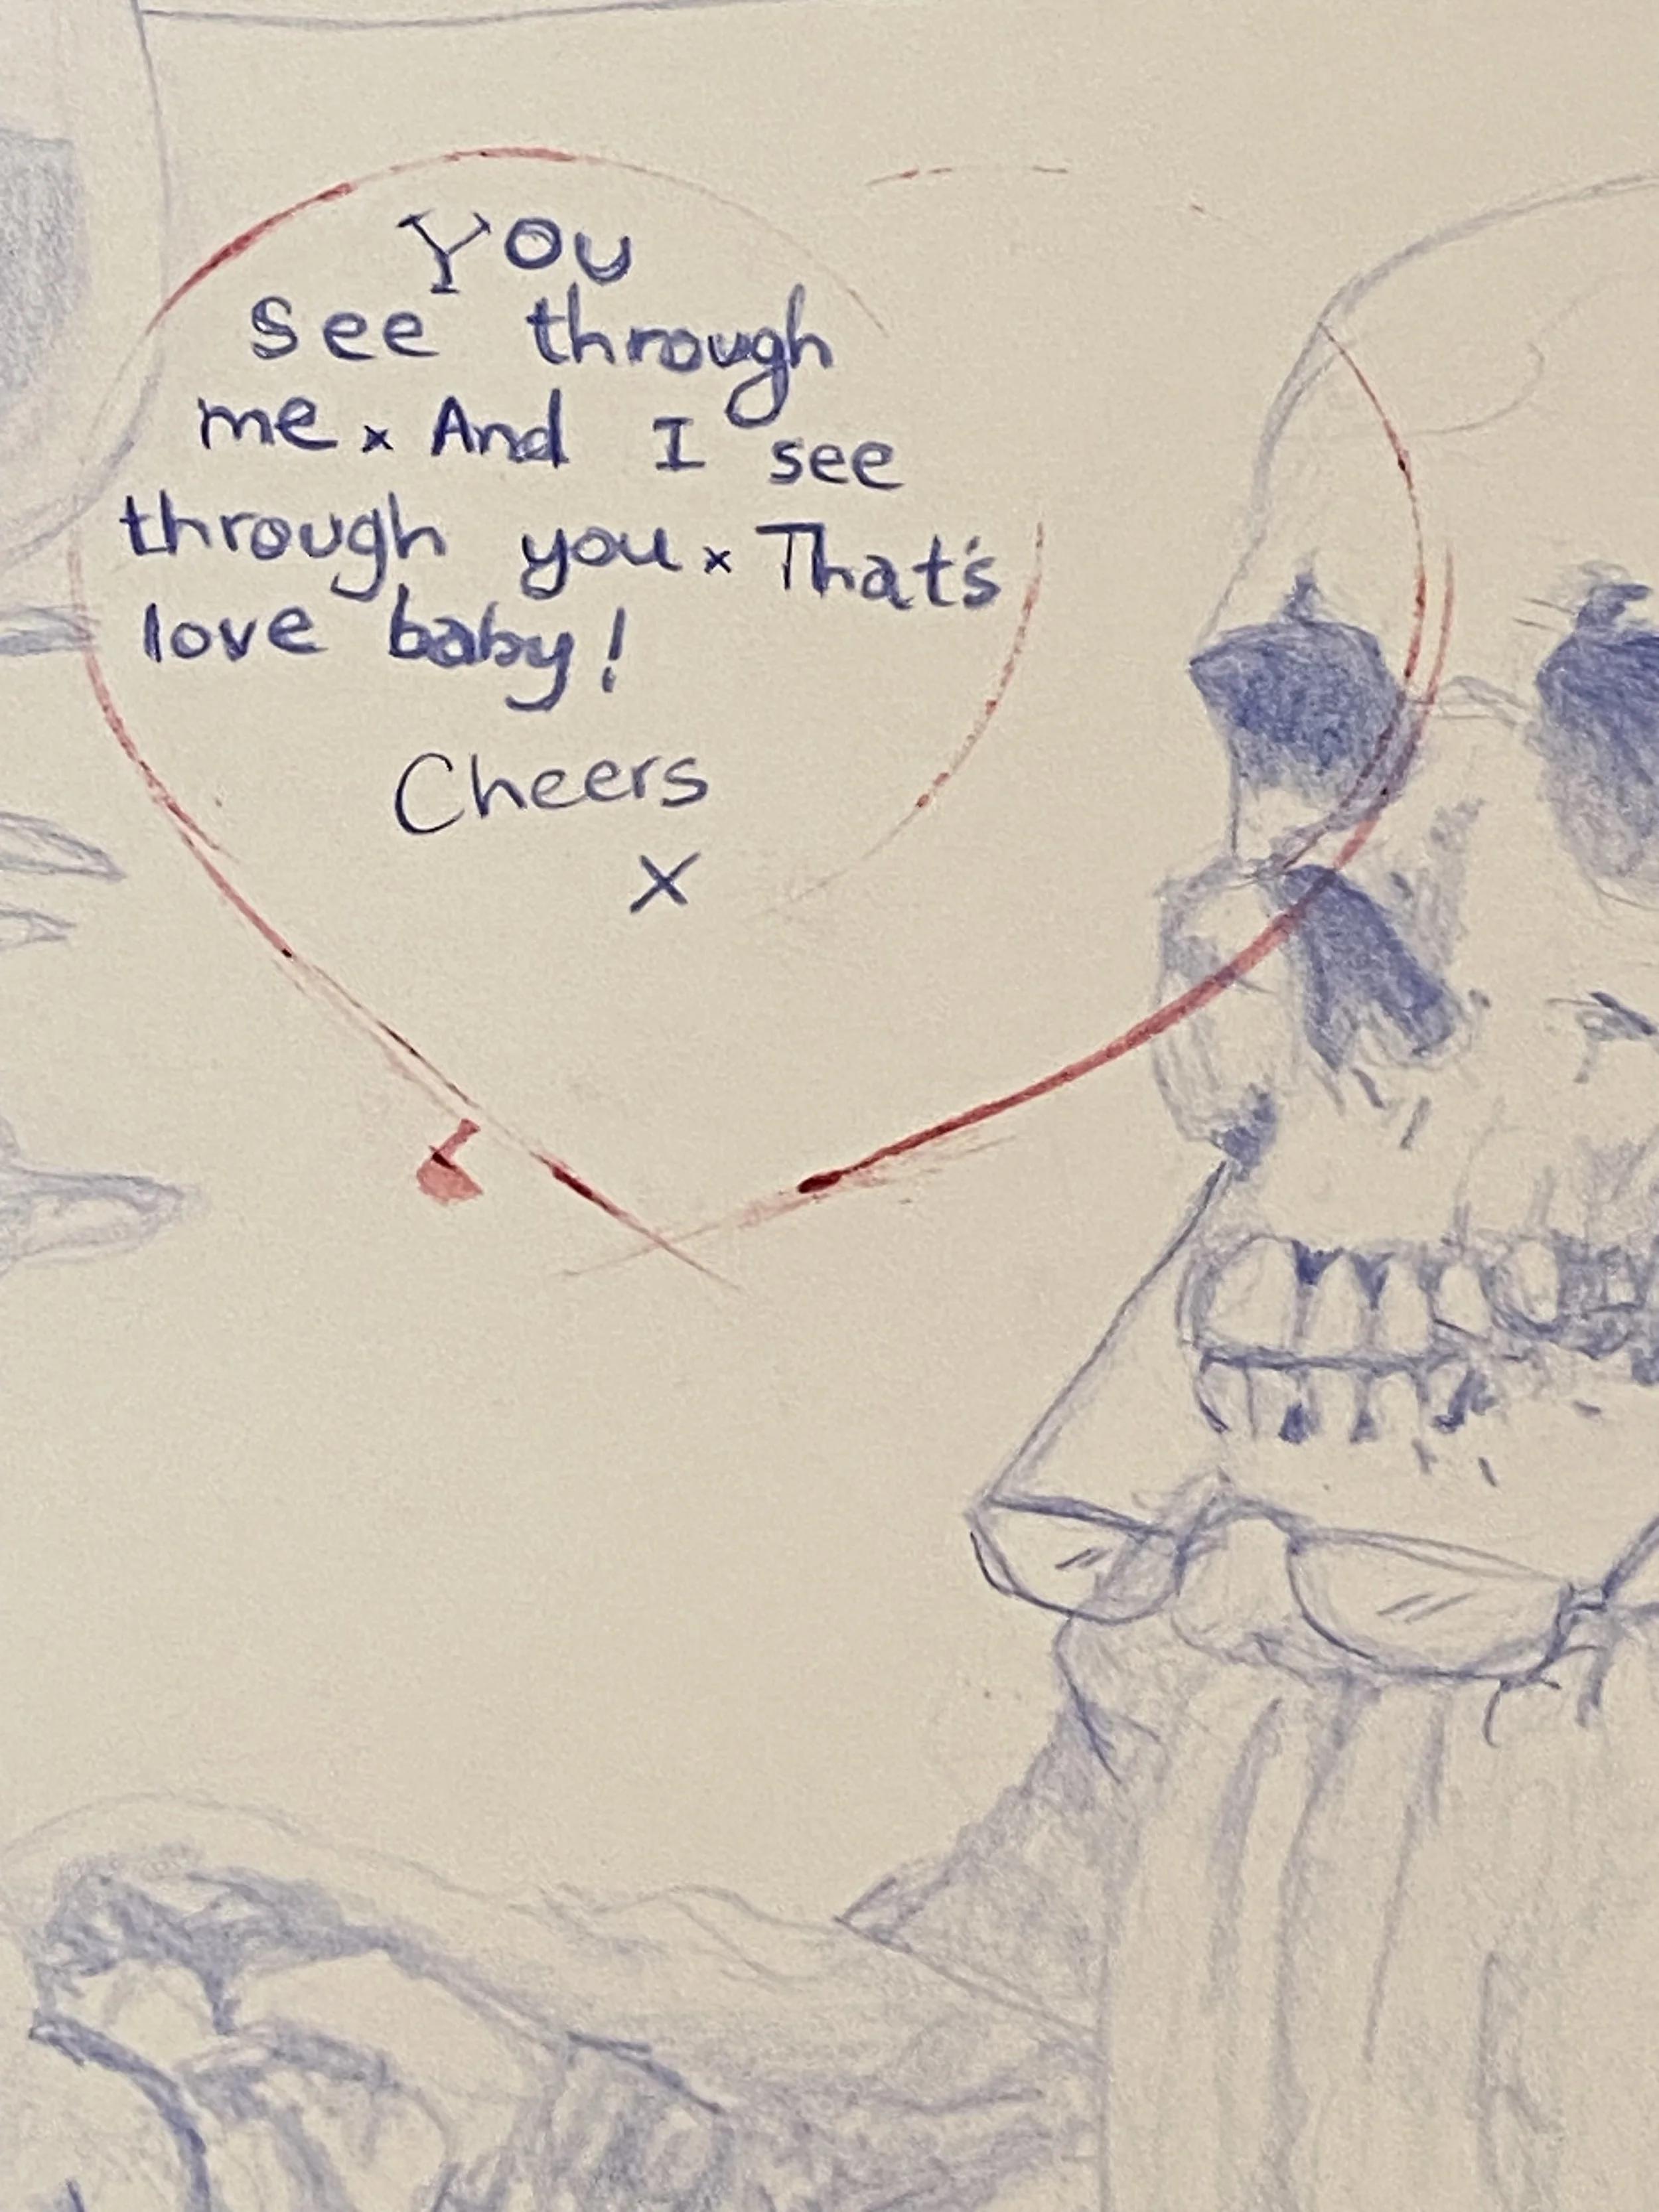 You
see through
me x And I see
through you x That's
love baby!
Cheers
x